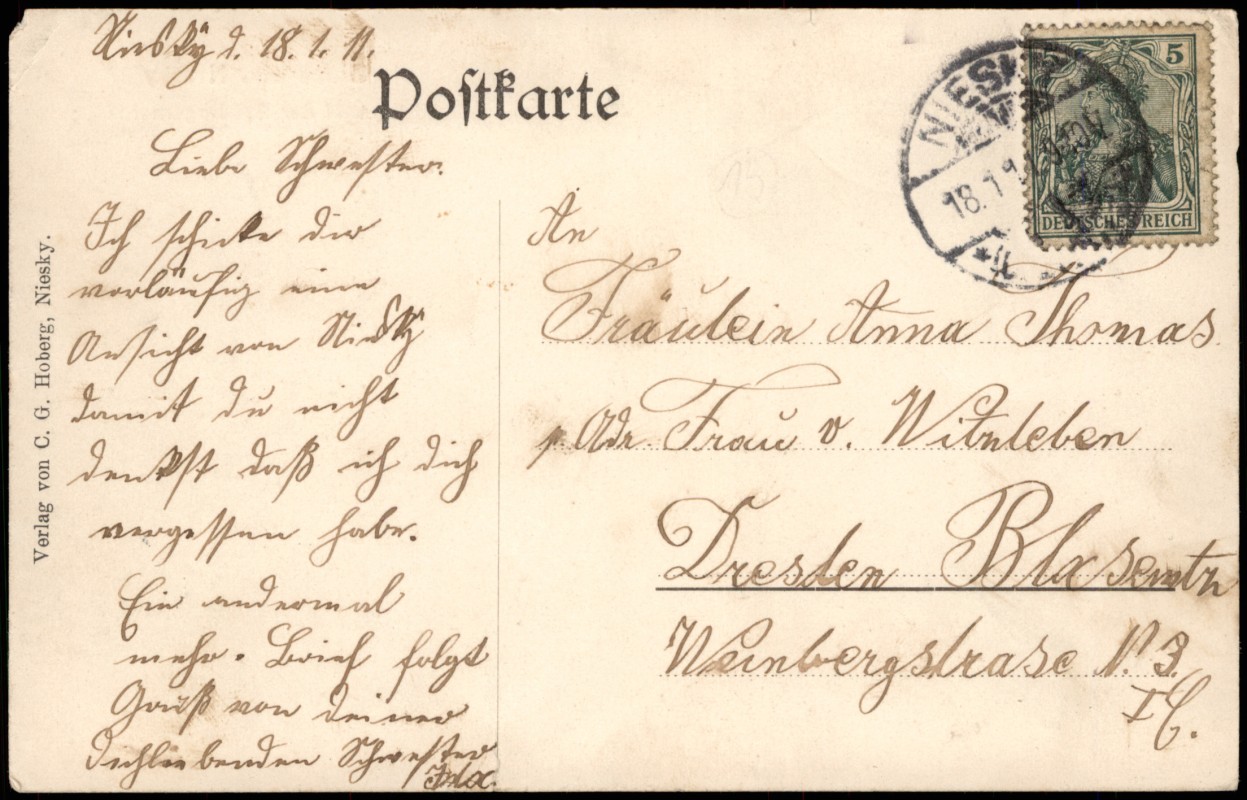 Niesky d. 18. 1. 11.
Postkarte
Liebe Schwester.
Ich schicke dir
vorläufig eine
Ansicht von Niesky
damit du nicht
denkst daß ich dich
vergessen habe.
Ein andermal
mehr. Brief folgt
Gruß von deiner
dichliebenden Schwester
Verlag von C. G. Hoberg, Niesky.
NIESKY
18.1.
5
DEUTSCHES REICH
An
Fräulein Anna Thomas
p. Adr. Frau v. Witzleben
Dresden Blasewitz
Weinbergstrase N. 3.
I E.